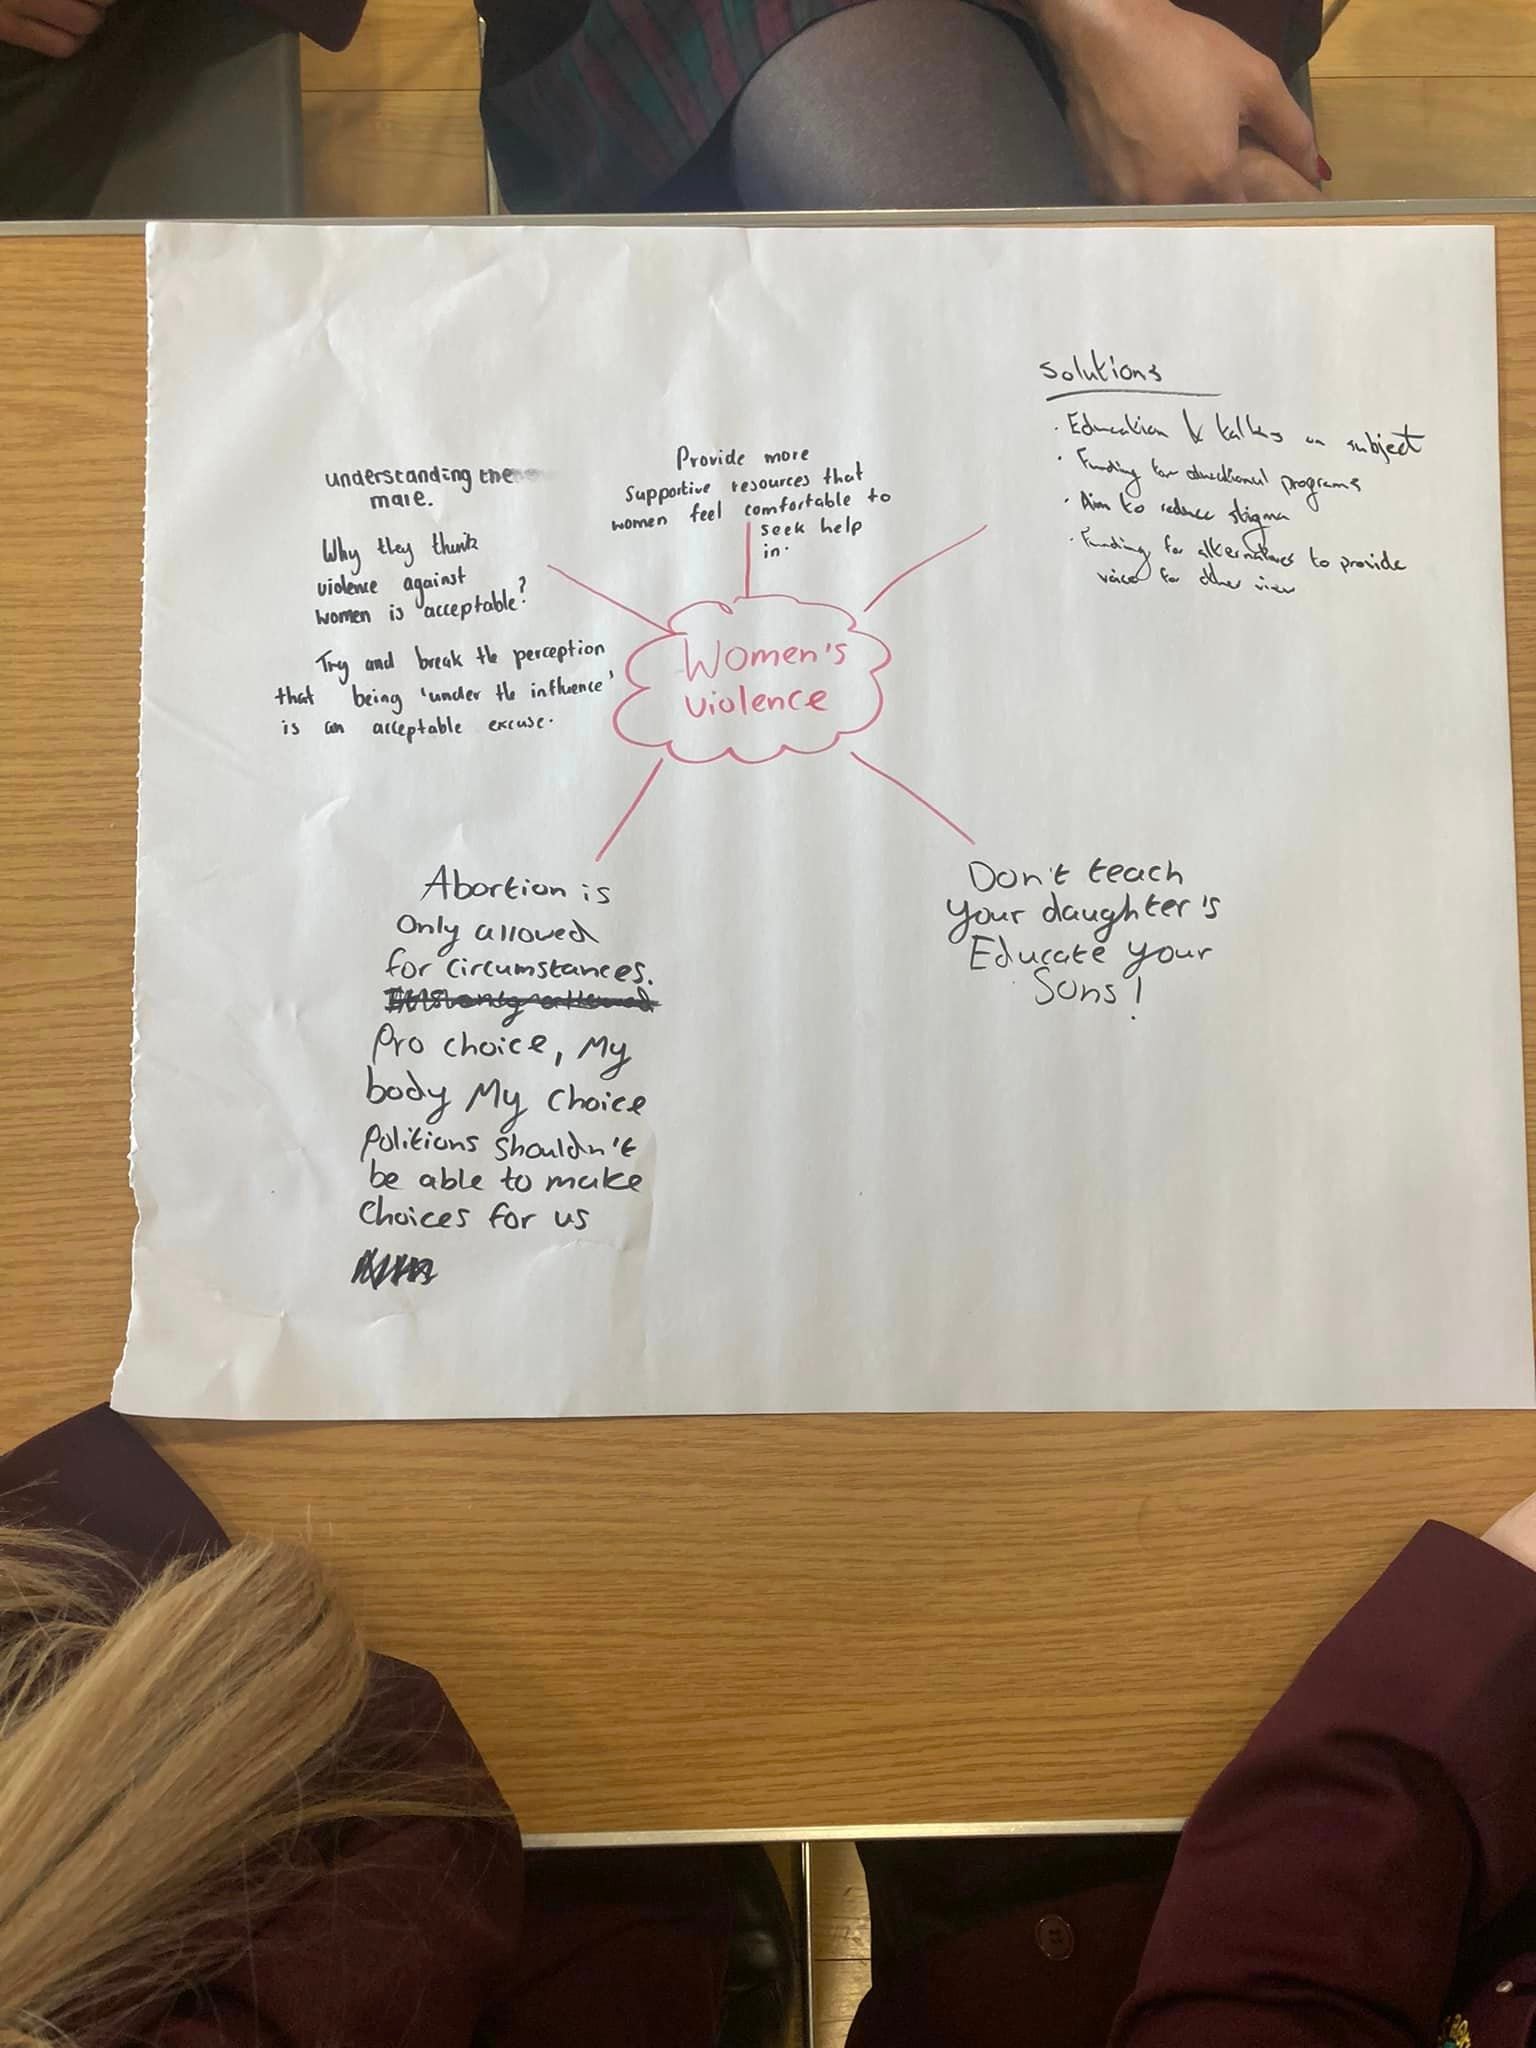 Women's
violence
understanding the
male.
Why they think
violence against
women is acceptable?
Try and break the perception
that being 'under the influence'
is an acceptable excuse.
Provide more
supportive resources that
women feel comfortable to
seek help
in.
Solutions
· Education & talks on subject
· Funding for educational programs
· Aim to reduce stigma
· Funding for alternatives to provide
voice for other view
Abortion is
Only allowed
for circumstances.
Pro choice, My
body My choice
Politions shouldn't
be able to make
Choices for us
Don't teach
your daughter's
Educate your
Sons!